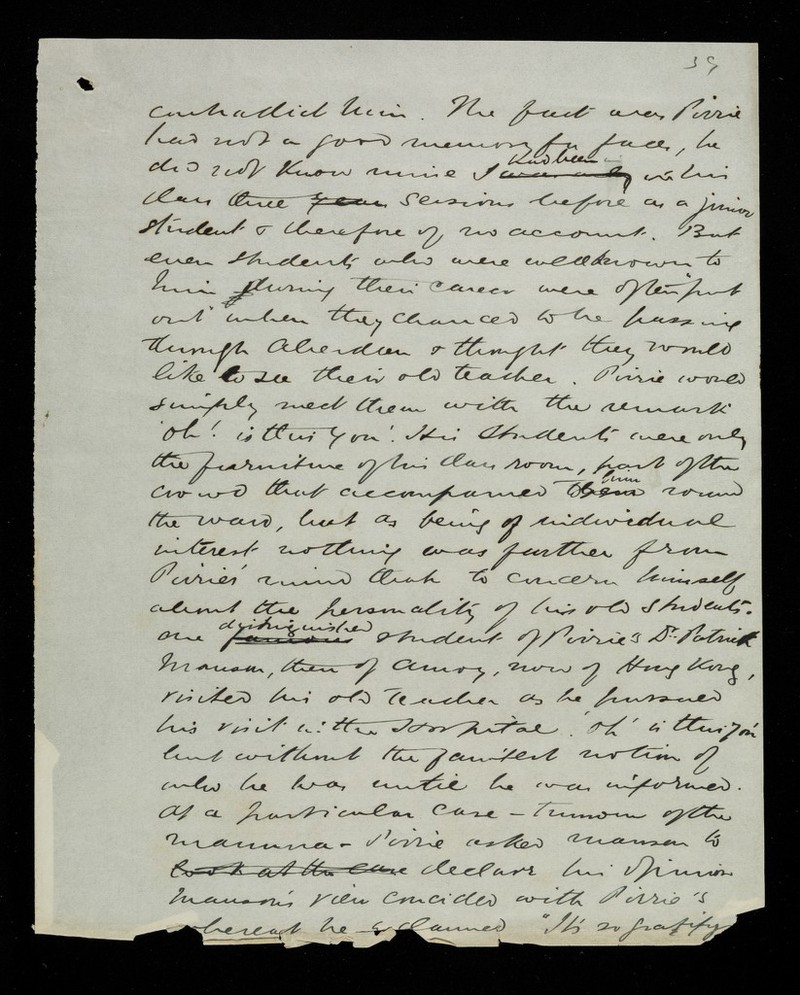 39
contradict him. The fact was Pirrie
had not a good memory for faces, he
did not know mine I had been in his
class three years sessions before as a junior
student & therefore of no account. But
even students who were well known to
him during their career were often "put
out" when they chanced to be passing
through Aberdeen & thought they would
like to see their old teacher. Pirrie would
simply meet them with the remark
'Oh! is this you'. His students were only
the furniture of his class room, part of the
crowd that accompanied them him round
the ward, but as being of individual
interest nothing was further from
Pirrie's mind than to concern himself
about the personality of his old students.
One famous distinguished student of Pirrie's Dr. Patrick
Manson, then of Amoy, now of Hong Kong,
visited his old teacher as he pursued
his visit in the Hospital. 'Oh' is this you
but without the faintest notion of
who he was until he was informed.
At a particular case - tumour of the
mamma - Pirrie asked Manson to
look at the case declare his opinion
Manson's view coincided with Pirrie's
whereat he exclaimed "It's so gratify